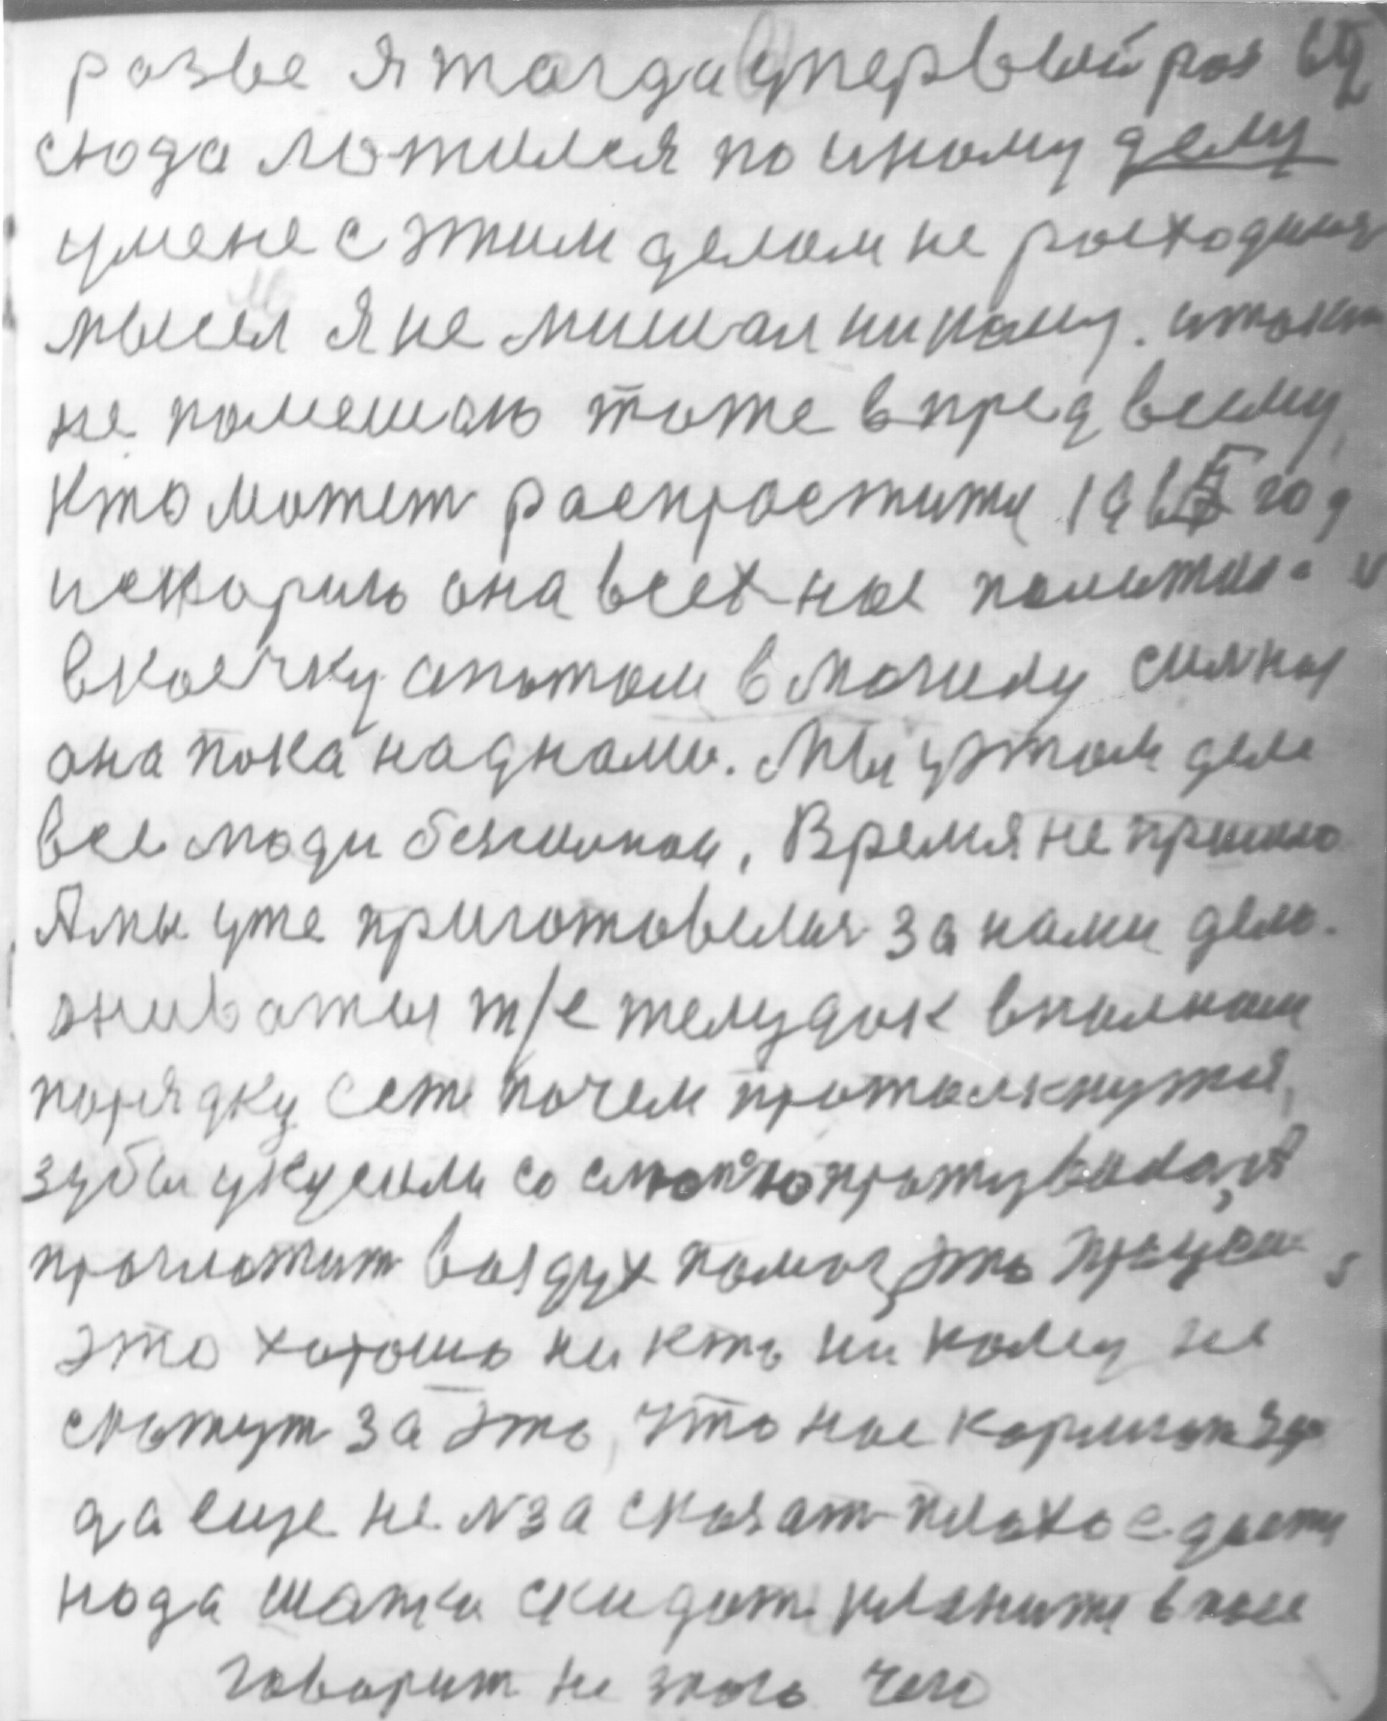 разве я тогда упервый раз
сюда ложился по иному делу
умене с этим делом не росходился
мысел я не мишал никому. итокт
не помешаю тоже впред всему,
Кто может распростити 196 год
искорил она всех нас положил
вкоечку апотом вмогилу силная
она пока наднами. Мы уэтом деле
все люди безсилнои, Время не пришло
Амы уже приготовелися за нами дело.
т/е желудок вполном
порядку есть почем протолкнутся,
зубы укусили со слюною прожувалося
проглотит воздух помог, это
это хорошо ни кто ни кому не
скажут за это, что нас кормит
да еще не лза сказат плохое
нода шапки скидат кланится внасе
говорит не знаю чего